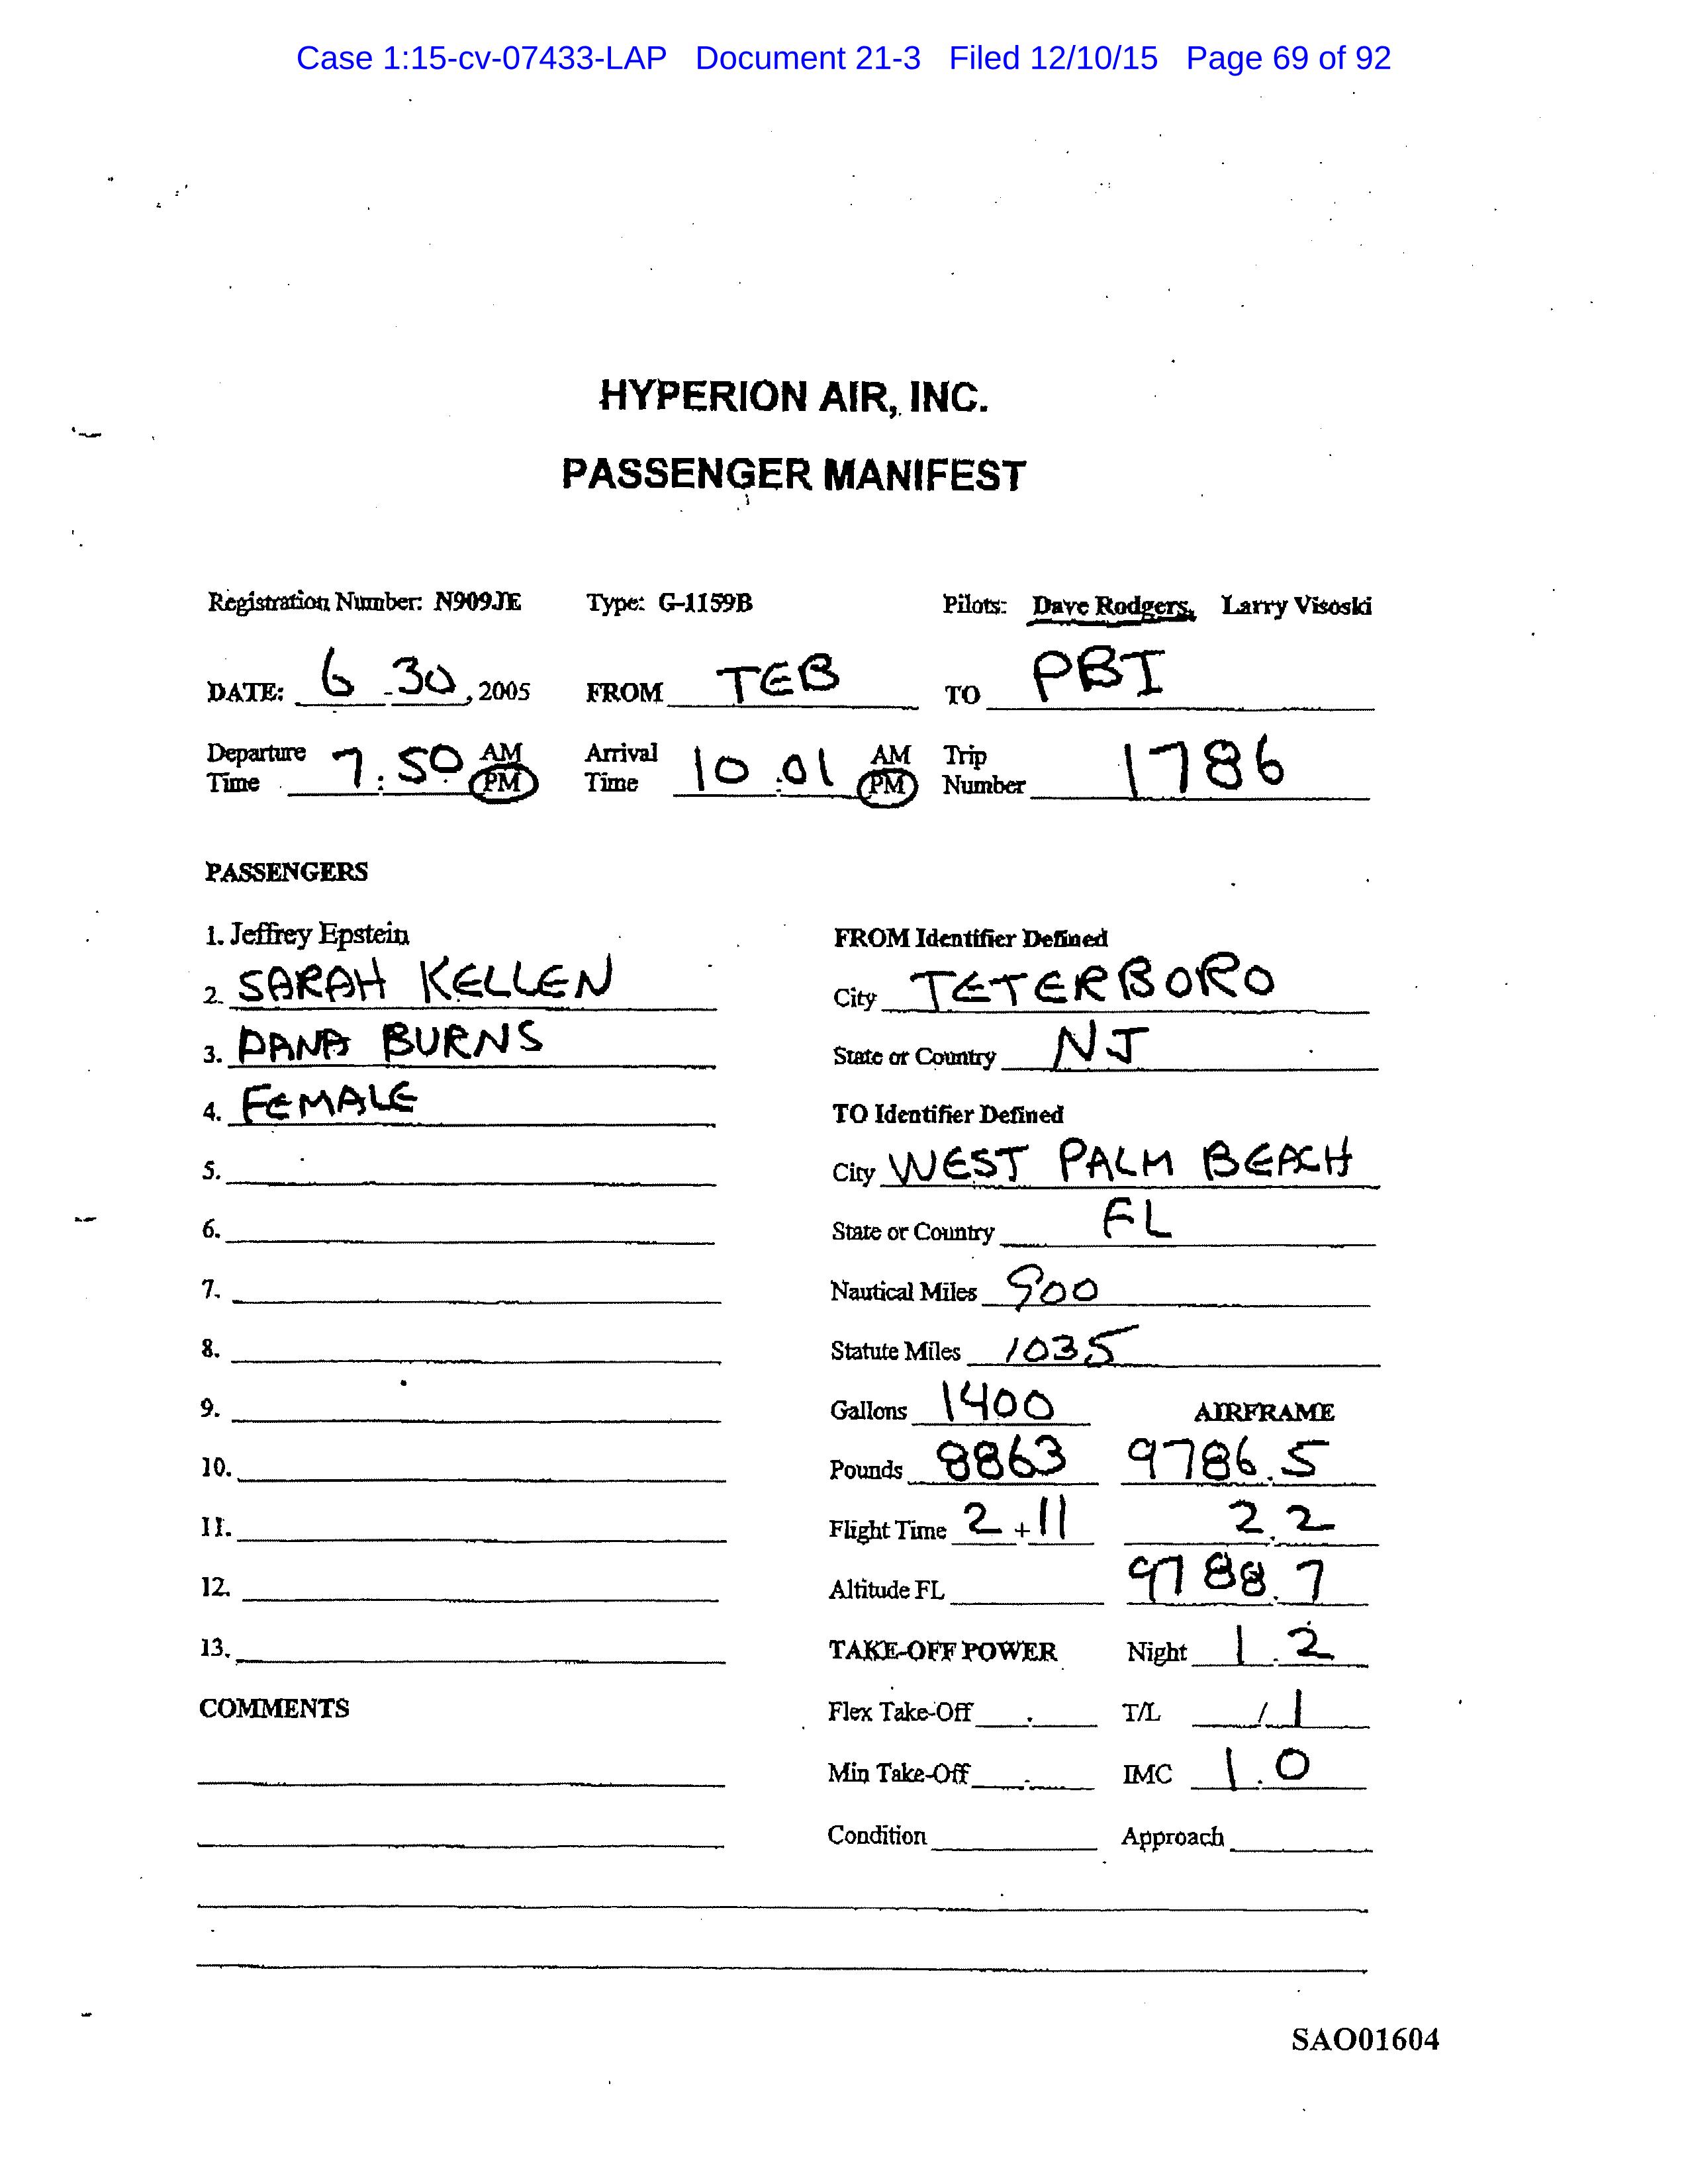 Case 1:15-cv-07433-LAP Document 21-3 Filed 12/10/15 Page 69 of 92
HYPERION AIR, INC.
PASSENGER MANIFEST
Registration Number: N909JE Type: G-1159B Pilots: Dave Rodgers, Larry Visoski
DATE: 6-30, 2005 FROM TEB TO PBI
Departure Time 7:50 AM PM Arrival Time 10:01 AM PM Trip Number 1786
PASSENGERS
1. Jeffrey Epstein
2. SARAH KELLEN
3. DANA BURNS
4. FEMALE
5.
6.
7.
8.
9.
10.
11.
12.
13.
COMMENTS
FROM Identifier Defined
City TETERBORO
State or Country NJ
TO Identifier Defined
City WEST PALM BEACH
State or Country FL
Nautical Miles 900
Statute Miles 1035
Gallons 1400 AIRFRAME
Pounds 8863 9786.5
Flight Time 2+11 2.2
Altitude FL 9788.7
TAKE-OFF POWER Night 1.2
Flex Take-Off . T/L /1
Min Take-Off . IMC 1.0
Condition Approach
SAO01604